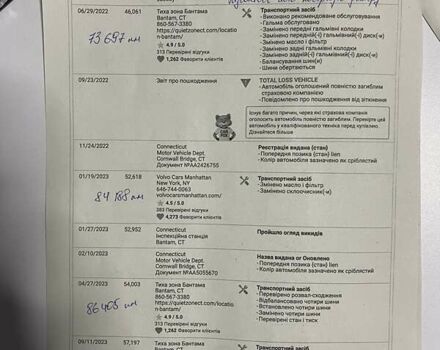 06/29/2022 46,061 Тиха зона Бантама Транспортний засіб
Bantam, CT - Виконано рекомендоване обслуговування
860-567-3380 - Гальма обслуговано
https://quietzonect.com/locatio - Замінено передні гальмівні колодки
n-bantam/ - Замінено передній(-і) гальмівний(-і) диск(-и)
73 697 км - Замінено масло і фільтр
4.9 / 5.0 - Замінено задні гальмівні колодки
313 Перевірені відгуки - Замінено задній(-і) гальмівний(-і) диск(-и)
1,262 Фаворити клієнтів - Балансування шин(и)
- Шини обертаються
09/23/2022 Звіт про пошкодження TOTAL LOSS VEHICLE
- Автомобіль оголошений повністю загиблим
страховою компанією
- Повідомлено про пошкодження від зіткнення
Існує багато причин, через які страхова компанія
оголосить автомобіль повністю загиблим. Перевірте цей
автомобіль у кваліфікованого техніка перед купівлею.
Дізнайтеся більше
CAR
FOX
11/24/2022 Connecticut Реєстрація видана (стан)
Motor Vehicle Dept. - Попередня позика (стан) lien
Cornwall Bridge, CT - Колір автомобіля зазначено як сріблястий
Документ №AA2426755
01/19/2023 52,618 Volvo Cars Manhattan Транспортний засіб
New York, NY - Замінено масло і фільтр
646-744-0063 - Замінено склоочисник(-и)
volvocarsmanhattan.com/
84 188 км
4.5 / 5.0
383 Перевірені відгуки
4,273 Фаворити клієнтів
01/27/2023 52,952 Connecticut Пройшло огляд викидів
Інспекційна станція
Bantam, CT
02/10/2023 Connecticut Назва видана or Оновлено
Motor Vehicle Dept. - Попередня позика (стан) lien
Cornwall Bridge, CT - Колір автомобіля зазначено як сріблястий
Документ №AA5055670
04/27/2023 54,003 Тиха зона Бантама Транспортний засіб
Bantam, CT - Перевірено розвал-сходження
860-567-3380 - Відбалансовано чотири шини
https://quietzonect.com/locatio - Встановлено чотири шини
n-bantam/ - Замінено чотири шини
86 405 км - Перевірені стан і тиск
4.9 / 5.0
313 Перевірені відгуки
1,262 Фаворити клієнтів
09/11/2023 57,197 Тиха зона Бантама Транспортний засіб
Bantam, CT